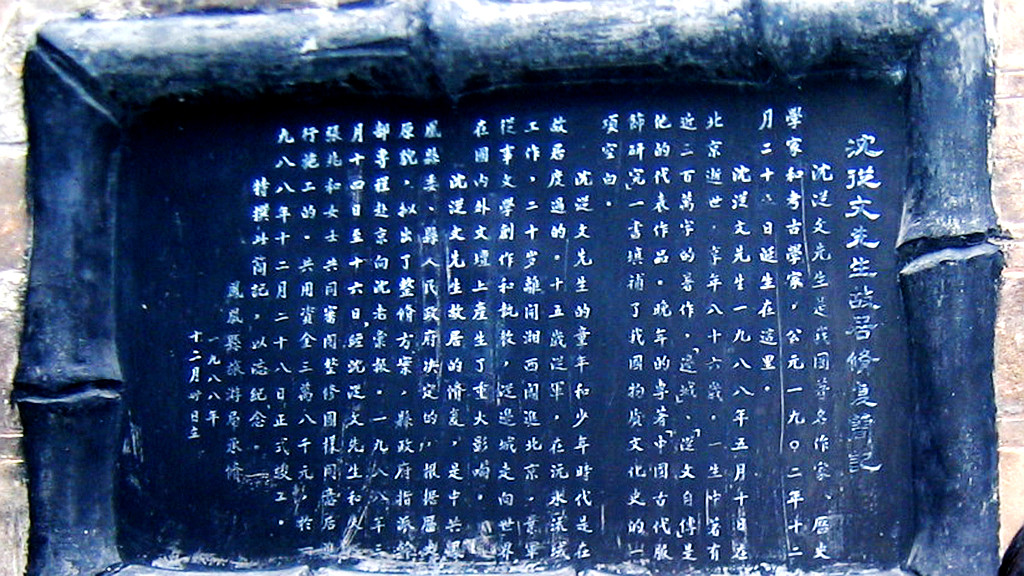 沈從文先生故居修復簡記
沈從文先生是我國著名作家、歷史
學家和考古學家，公元一九〇二年十二
月二十 日誕生在這里。
沈從文先生一九八八年五月十日在
北京逝世，享年八十六歲。一生中著有
近三百萬字的著作，「邊城」、「從文自傳」是
他的代表作品。晚年的專著中國古代服
飾研究一書填補了我國物質文化史的一
項空白。
沈從文先生的童年和少年時代是在
故居度過的。十五歲從軍，在沅水流域
工作，二十岁離開湘西闖進北京，棄軍
從事文學創作和執教，從邊城走向世界
在國内外文壇上産生了重大影响。
沈從文先生故居的修复，是中共
鳳縣委、縣人民政府决定的，根据歷史
原貌，拟出了整修方案，縣政府指派
部専程赴京向沈老彙報。一九八八年
月十四日至十六日經沈從文先生和
張兆和女士共同審閱整修圖樣同意后
行施工的。共用資金三萬八千元，於
九八八年十二月二十八日正式竣工。
特撰此簡記，以誌紀念。
鳳凰縣旅游局承修
一九八八年
十二月廿日立